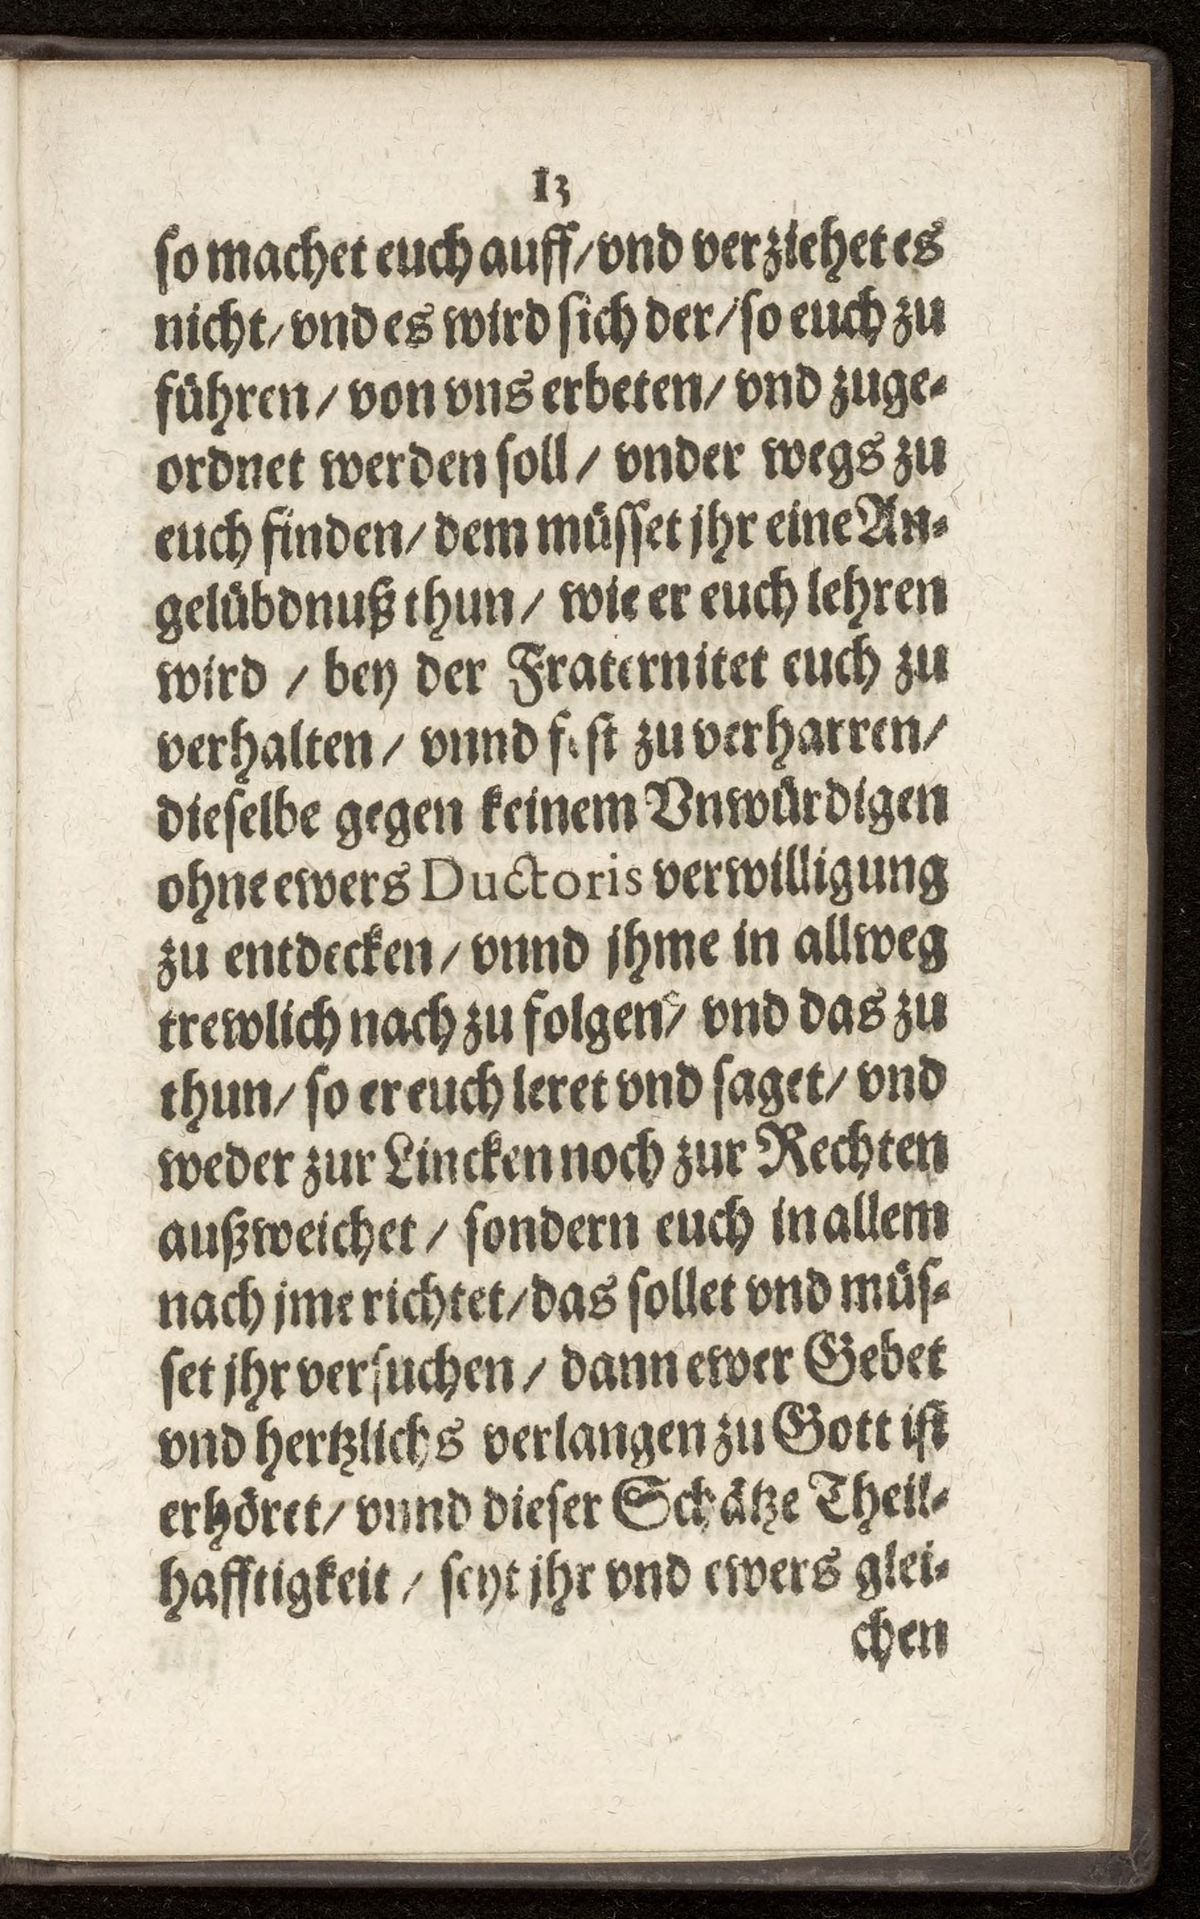 13
so machet euch auff/ vnd verziehet es
nicht/ vnd es wird sich der/ so euch zu
führen/ von vns erbeten/ vnd zuge-
ordnet werden soll/ vnder wegs zu
euch finden/ dem müsset jhr eine An-
gelübdnuß thun/ wie er euch lehren
wird / bey der Fraternitet euch zu
verhalten/ vnnd fest zu verharren/
dieselbe gegen keinem Vnwürdigen
ohne ewers Ductoris verwilligung
zu entdecken/ vnnd jhme in allweg
trewlich nach zu folgen/ vnd das zu
thun/ so er euch leret vnd saget/ vnd
weder zur Lincken noch zur Rechten
außweichet/ sondern euch in allem
nach jme richtet/ das sollet vnd müs-
set jhr versuchen/ dann ewer Gebet
vnd hertzlichs verlangen zu Gott ist
erhöret/ vnnd dieser Schätze Theil-
hafftigkeit/ seyt jhr vnd ewers glei-
chen